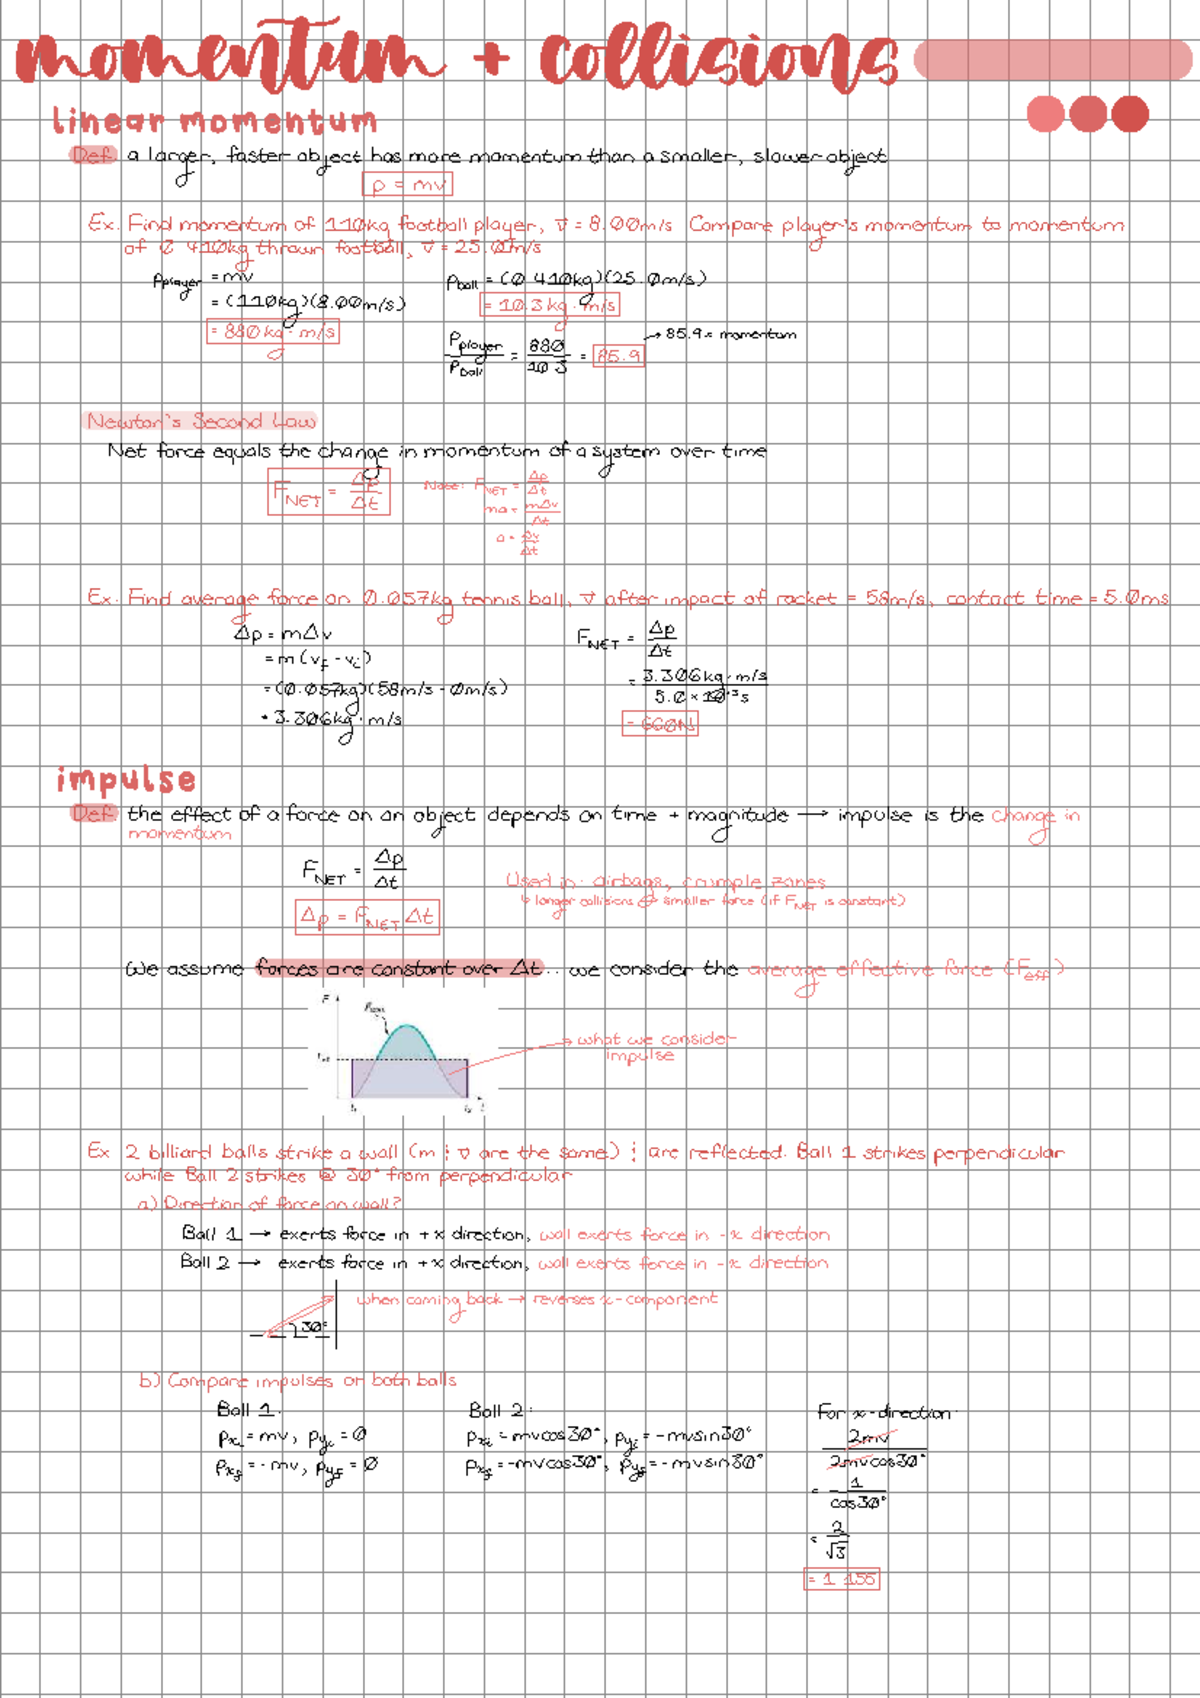 momentum + collisions
linear momentum
Def a larger, faster object has more momentum than a smaller, slower object
p = mv
Ex. Find momentum of 110kg football player, v = 8.00m/s Compare player's momentum to momentum
of 0.410kg thrown football, v = 25.0m/s
Pplayer = mv
= (110kg)(8.00m/s)
= 880kg · m/s
Pball = (0.410kg)(25.0m/s)
= 10.3 kg · m/s
Pplayer/Pball = 880/10.3 = 85.9
→ 85.9x momentum
Newton's Second Law
Net force equals the change in momentum of a system over time
FNET = Δp/Δt
Note: FNET = Δp/Δt
ma = mΔv/Δt
a = Δv/Δt
Ex. Find average force on 0.057kg tennis ball, v after impact of racket = 58m/s, contact time = 5.0ms
Δp = mΔv
= m(vf - vi)
= (0.057kg)(58m/s - 0m/s)
= 3.306kg · m/s
FNET = Δp/Δt
= 3.306kg·m/s / 5.0 × 10⁻³s
= 660N
impulse
Def the effect of a force on an object depends on time + magnitude → impulse is the change in
momentum
FNET = Δp/Δt
Δp = FNET Δt
Used in: airbags, crumple zones
↳ longer collisions smaller force (if FNET is constant)
We assume forces are constant over Δt... we consider the average effective force (Feff)
F
→ what we consider
impulse
Ex 2 billiard balls strike a wall (m & v are the same) & are reflected. Ball 1 strikes perpendicular
while Ball 2 strikes @ 30° from perpendicular
a) Direction of force on wall?
Ball 1 → exerts force in +x direction, wall exerts force in -x direction
Ball 2 → exerts force in +x direction, wall exerts force in -x direction
when coming back → reverses x-component
30°
b) Compare impulses on both balls
Ball 1:
pxi = mv, pyi = 0
pxf = -mv, pyf = 0
Ball 2:
pxi = mvcos30°, pyi = -mvsin30°
pxf = -mvcos30°, pyf = -mvsin30°
For x-direction:
2mv/2mvcos30°
= 1/cos30°
= 2/√3
= 1.155